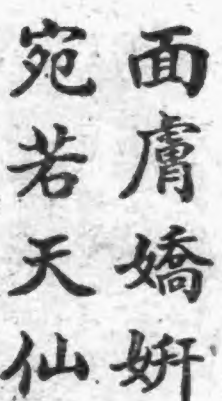 面膚嬌妍
宛若天仙